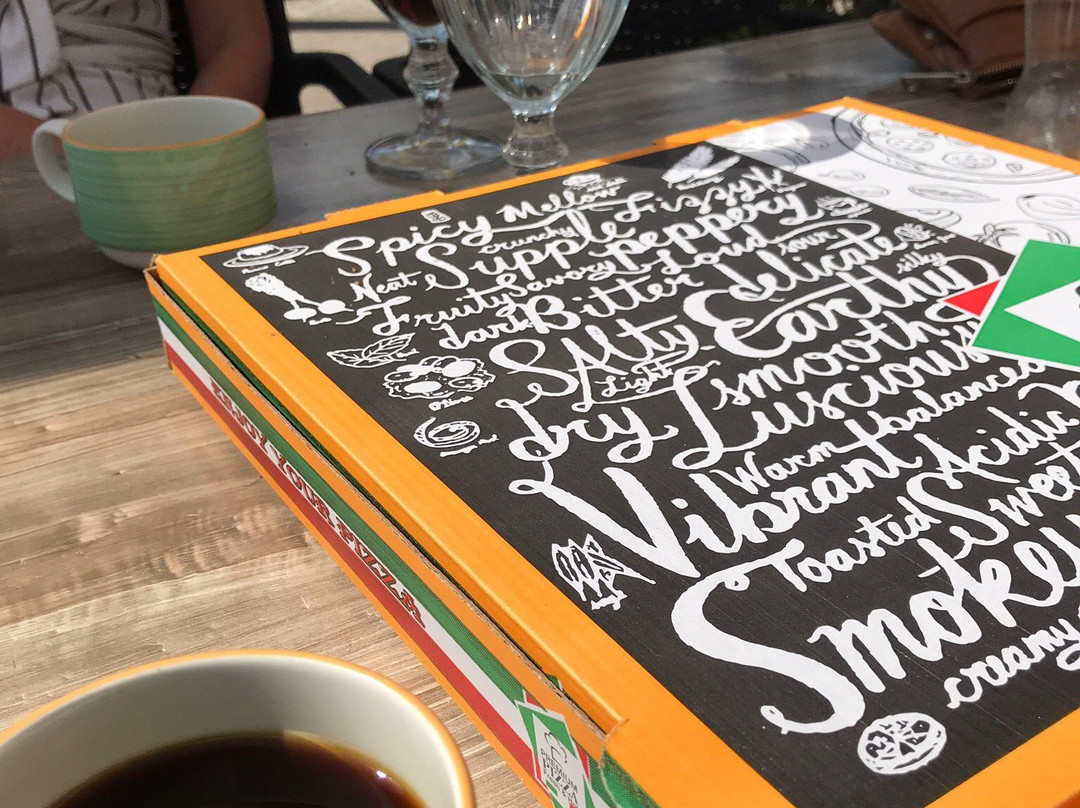 Spicy Mellow
crunchy
Neat Supple Frizzy
Fruity Savory peppery
dark Bitter Loud sour
delicate
silky
Salty Earthy
Light
dry smooth
Luscious
Warm balanced
Vibrant Acidic
Toasted Sweet
Smokey
creamy
ENJOY YOUR PIZZA
PREMIUM
PIZZA